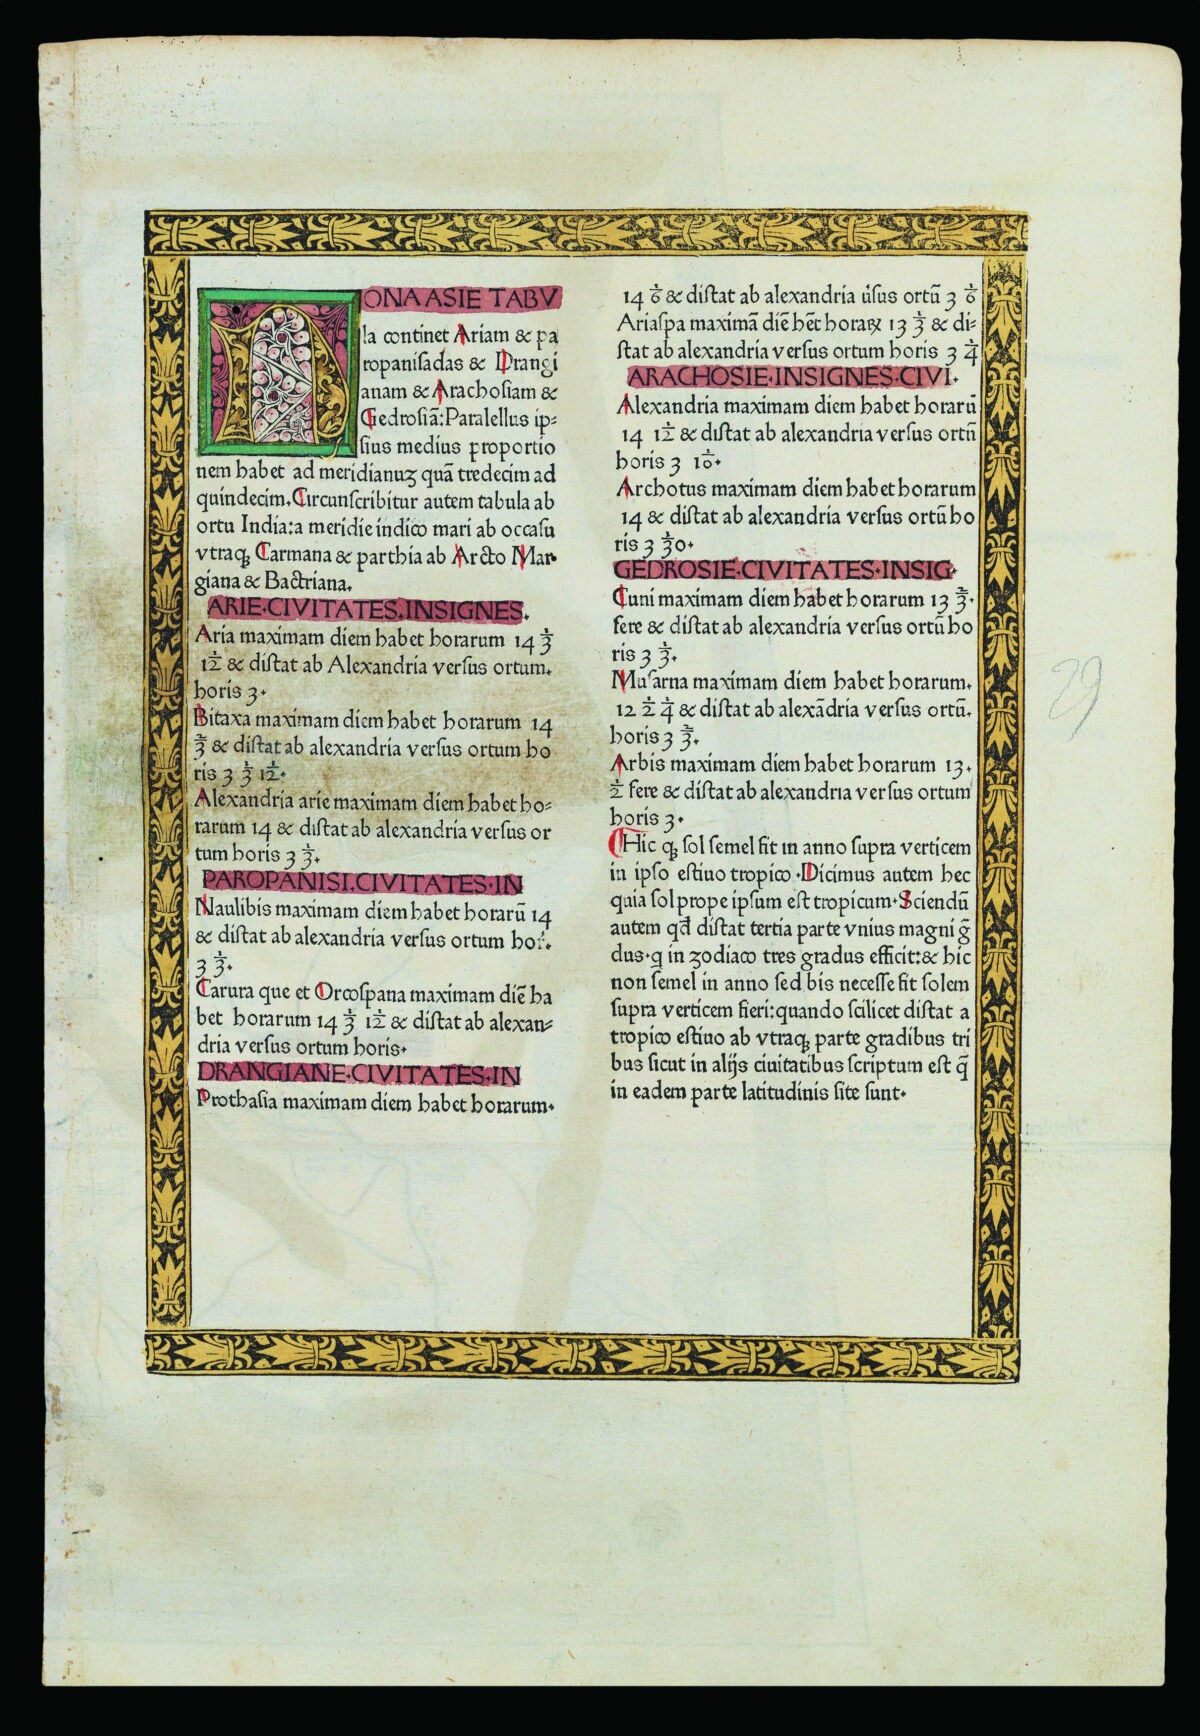 NONA ASIE TABV
la continet Ariam & pa
ropanisadas & Drangi
anam & Arachosiam &
Gedrosiã: Paralellus ip⸗
sius medius proportio
nem habet ad meridianuꝫ quã tredecim ad
quindecim. Circunscribitur autem tabula ab
ortu India: a meridie indico mari ab occasu
vtraqꝫ Carmana & parthia ab Arcto Mar⸗
giana & Bactriana.
ARIE·CIVITATES.INSIGNES.
Aria maximam diem habet horarum 14 ⅓
1/12 & distat ab Alexandria versus ortum.
horis 3·
Bitaxa maximam diem habet horarum 14
⅔ & distat ab alexandria versus ortum ho
ris 3 ⅓ 1/12·
Alexandria arie maximam diem habet ho⸗
rarum 14 & distat ab alexandria versus or
tum horis 3 ⅓.
PAROPANISI.CIVITATES·IN
Naulibis maximam diem habet horarũ 14
& distat ab alexandria versus ortum hor.
3 ⅓.
Carura que et Orcospana maximam diẽ ha
bet horarum 14 ⅓ 1/12 & distat ab alexan⸗
dria versus ortum horis·
DRANGIANE·CIVITATES·IN
Prothasia maximam diem habet horarum·
14 ⅙ & distat ab alexandria ṽsus ortũ 3 ⅙
Ariaspa maximã diẽ hẽt horaꝝ 13 ⅓ & di⸗
stat ab alexandria versus ortum horis 3 ¼
ARACHOSIE·INSIGNES·CIVI.
Alexandria maximam diem habet horarũ
14 1/12 & distat ab alexandria versus ortũ
horis 3 1/10·
Archotus maximam diem habet horarum
14 & distat ab alexandria versus ortũ ho
ris 3 1/30·
GEDROSIE·CIVITATES·INSIG·
Cuni maximam diem habet horarum 13 ⅔·
fere & distat ab alexandria versus ortũ ho
ris 3 ⅓.
Musarna maximam diem habet horarum.
12 ½ ¼ & distat ab alexãdria versus ortũ.
horis 3 ⅔.
Arbis maximam diem habet horarum 13.
½ fere & distat ab alexandria versus ortum
horis 3·
Hic qꝫ sol semel fit in anno supra verticem
in ipso estiuo tropico ·Dicimus autem hec
quia sol prope ipsum est tropicum·Sciendũ
autem qd̃ distat tertia parte vnius magni g̃
dus·q in zodiaco tres gradus efficit:& hic
non semel in anno sed bis necesse fit solem
supra verticem fieri:quando scilicet distat a
tropico estiuo ab vtraqꝫ parte gradibus tri
bus sicut in alijs ciuitatibus scriptum est q̃
in eadem parte latitudinis site sunt·
29